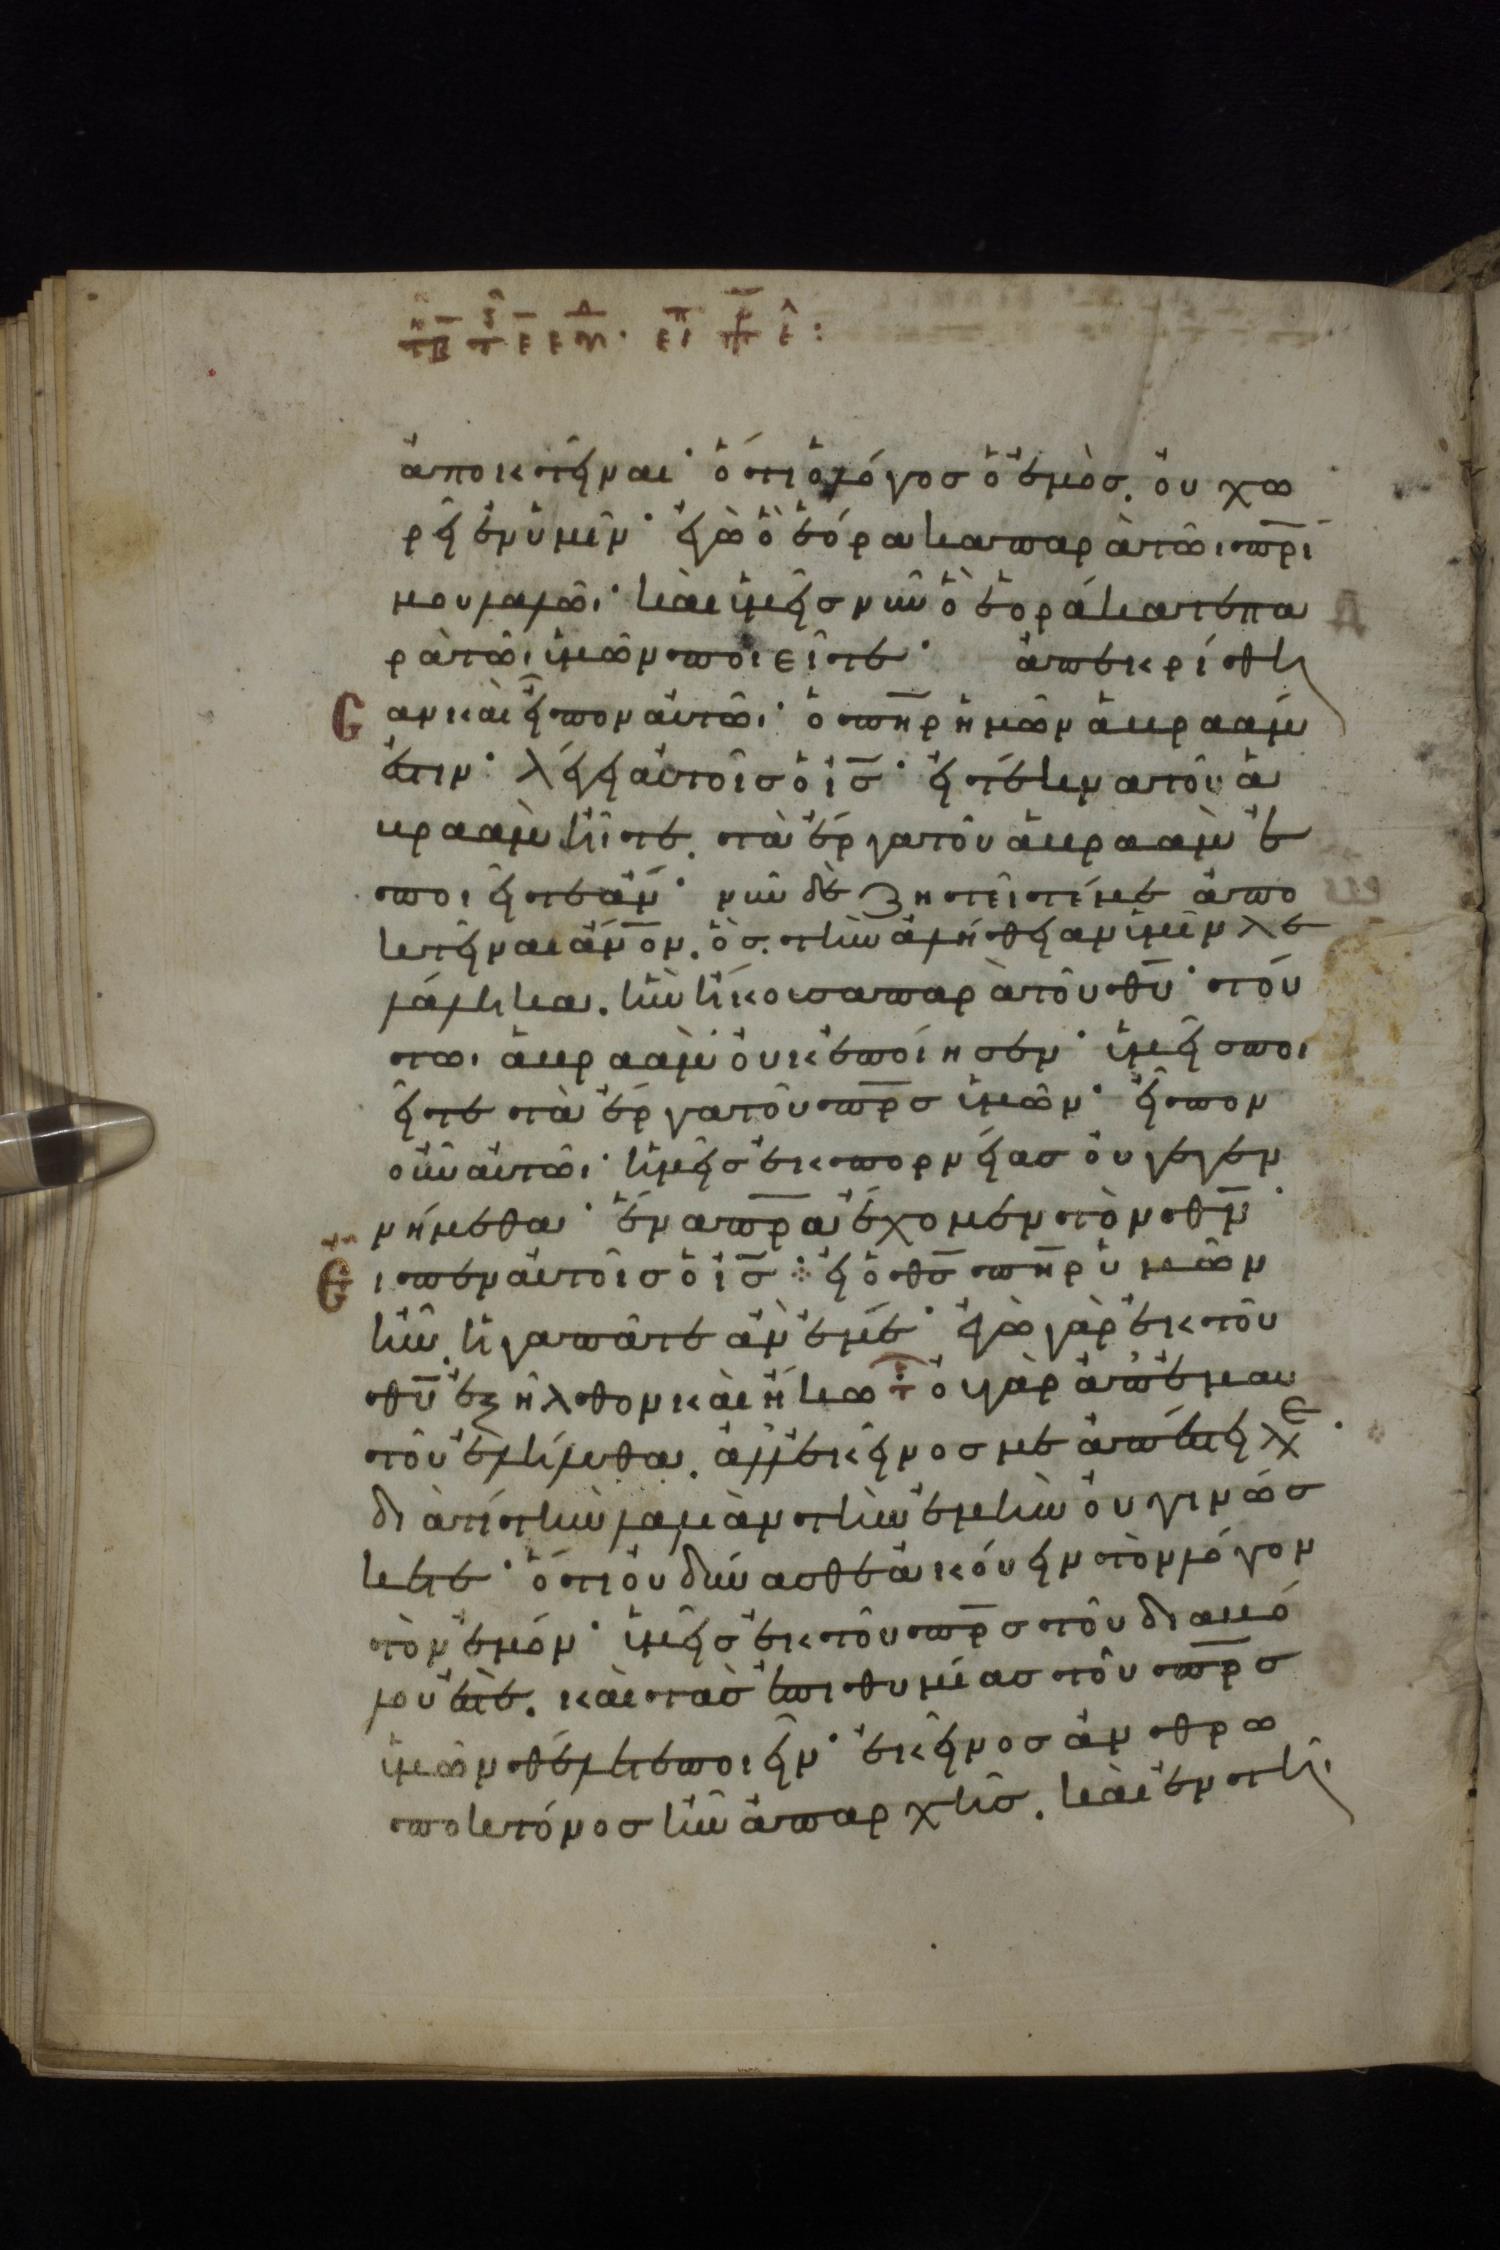 ἀποκτῆναι· ὅτι ὁ λόγος ὁ ἐμὸς. οὐ χω
ρεῖ ἐν ὑμῖν· ἐγὼ ὃ ἑόρακα παρὰ τῶι πρι
μου λαλῶι· καὶ ὑμεῖς νῦν ὃ ἑοράκατε πα
ρὰ τῶι ὑμῶν ποιεῖτε· ἀπεκρίθη
σαν καὶ εἶπον αὐτῶι· ὁ πηρ ἡμῶν ἀβρααμ
ἐστιν· λέγει αὐτοῖς ὁ ις· εἰ τέκνα τοῦ ἀ
βρααμ ἦτε. τὰ ἔργα τοῦ ἀβρααμ ἐ
ποιεῖτε ἄν· νῦν δὲ ζητεῖτέ με ἀπο
κτεῖναι ἄνον. ὃς τὴν ἀλήθειαν ὑμῖν λε
λάληκα. ἣν ἤκουσα παρὰ τοῦ θυ· τοῦ
το ἀβρααμ οὐκ ἐποίησεν· ὑμεῖς ποι
εῖτε τὰ ἔργα τοῦ πρς ὑμῶν· εἶπον
οὖν αὐτῶι· ἡμεῖς ἐκ πορνείας οὐ γεγεν
νήμεθα· ἕνα πρα ἔχομεν τὸν θν·
Ειπεν αὐτοῖς ὁ ις· εἰ ὁ θς πηρ ὑμῶν
ἦν. ἠγαπᾶτε ἂν ἐμέ· ἐγὼ γὰρ ἐκ τοῦ
θυ ἐξῆλθον καὶ ἥκω· οὐ γὰρ ἀπ' ἐμαυ
τοῦ ἐλήλυθα. ἀλλ' ἐκεῖνος με ἀπέστειλε·
διὰ τί τὴν λαλιὰν τὴν ἐμὴν οὐ γινώσ
κετε· ὅτι οὐ δύνασθε ἀκούειν τὸν λόγον
τὸν ἐμόν· ὑμεῖς ἐκ τοῦ πρς τοῦ διαβό
λου ἐστὲ. καὶ τὰς ἐπιθυμίας τοῦ πρς
ὑμῶν θέλετε ποιεῖν· ἐκεῖνος ἀνθρω
ποκτόνος ἦν ἀπαρχῆς. καὶ ἐν τῆ